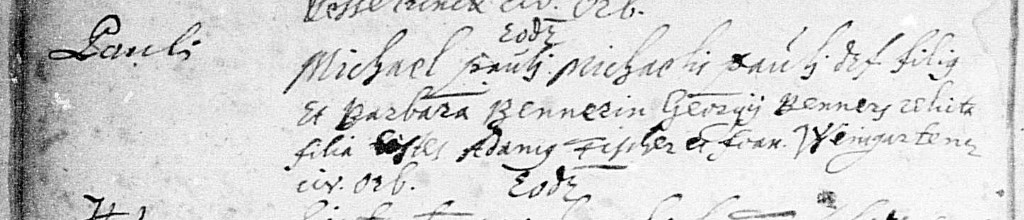 civ. Orb.
Eodē
Pauli
Michael Pauli Michaelis Pauli def. filiꝰ
Et Barbara Rennerin Georgij Renners relicta
filia testes Adamꝰ Fischer et Joan. Weingartener
civ. Orb.
Eodē